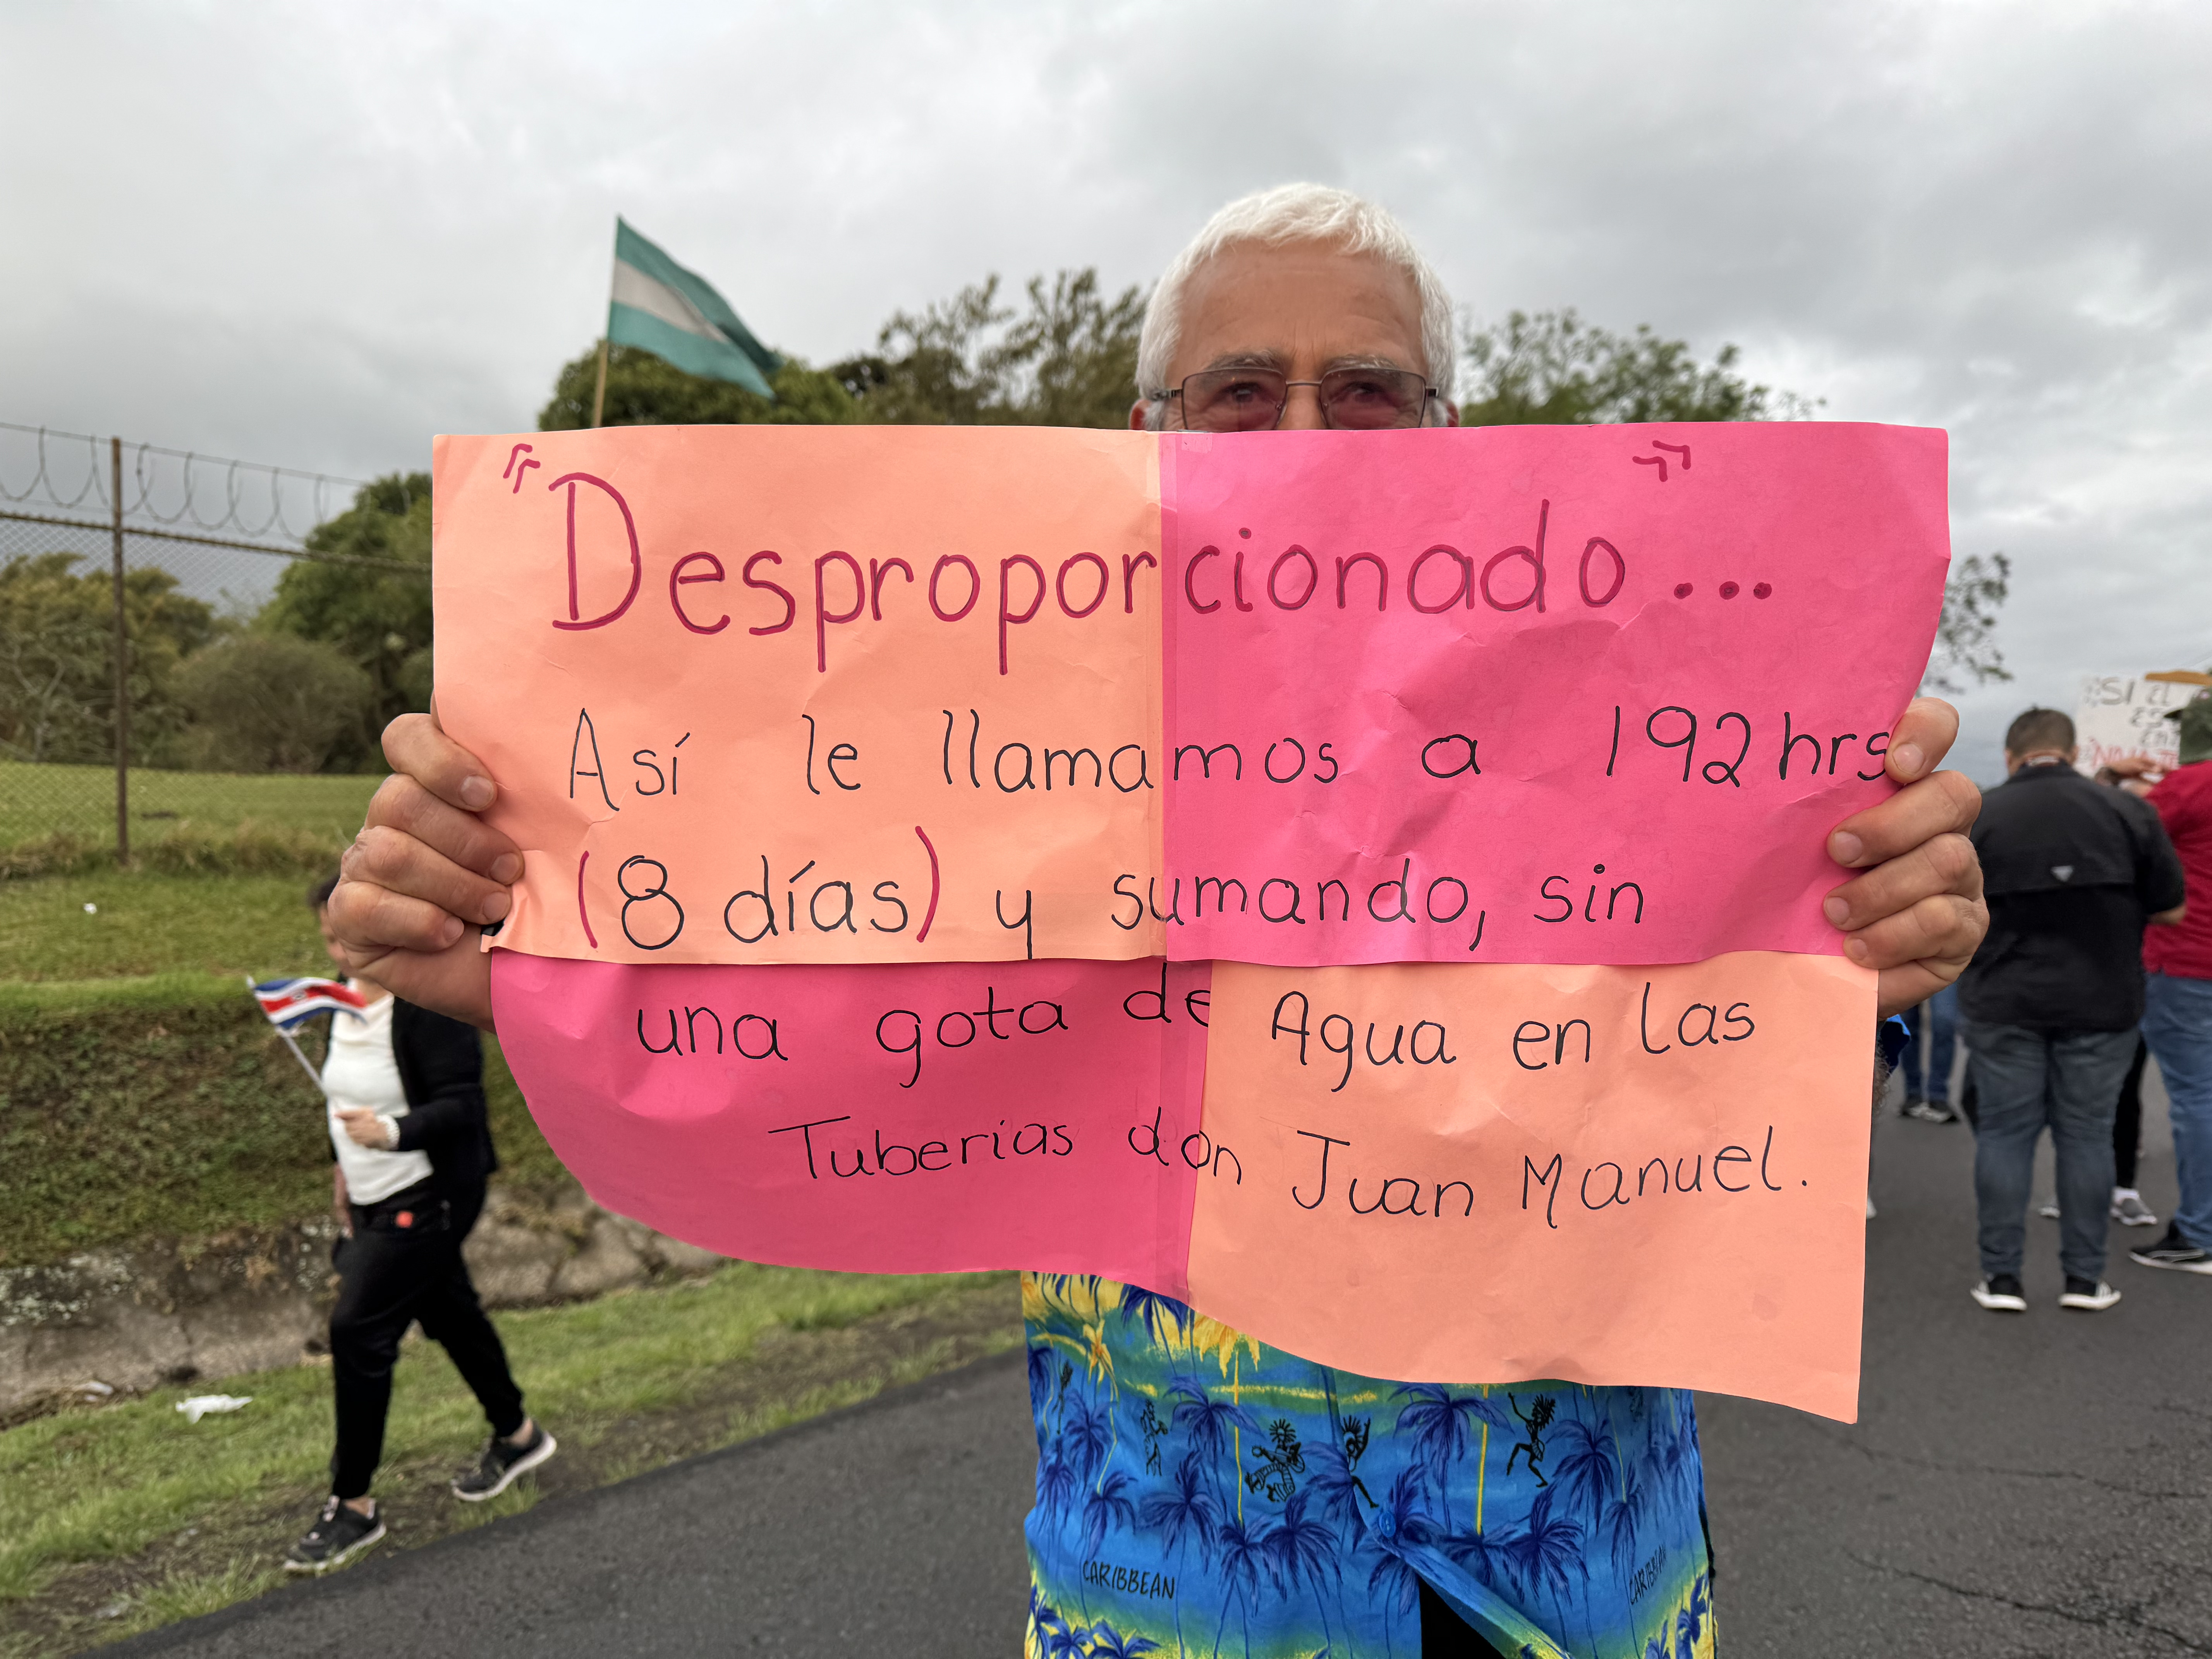 "Desproporcionado"...
Así le llamamos a 192 hrs
(8 días) y sumando, sin
una gota de Agua en las
Tuberías don Juan Manuel.
CARIBBEAN
CARIBBEAN
¡SI El